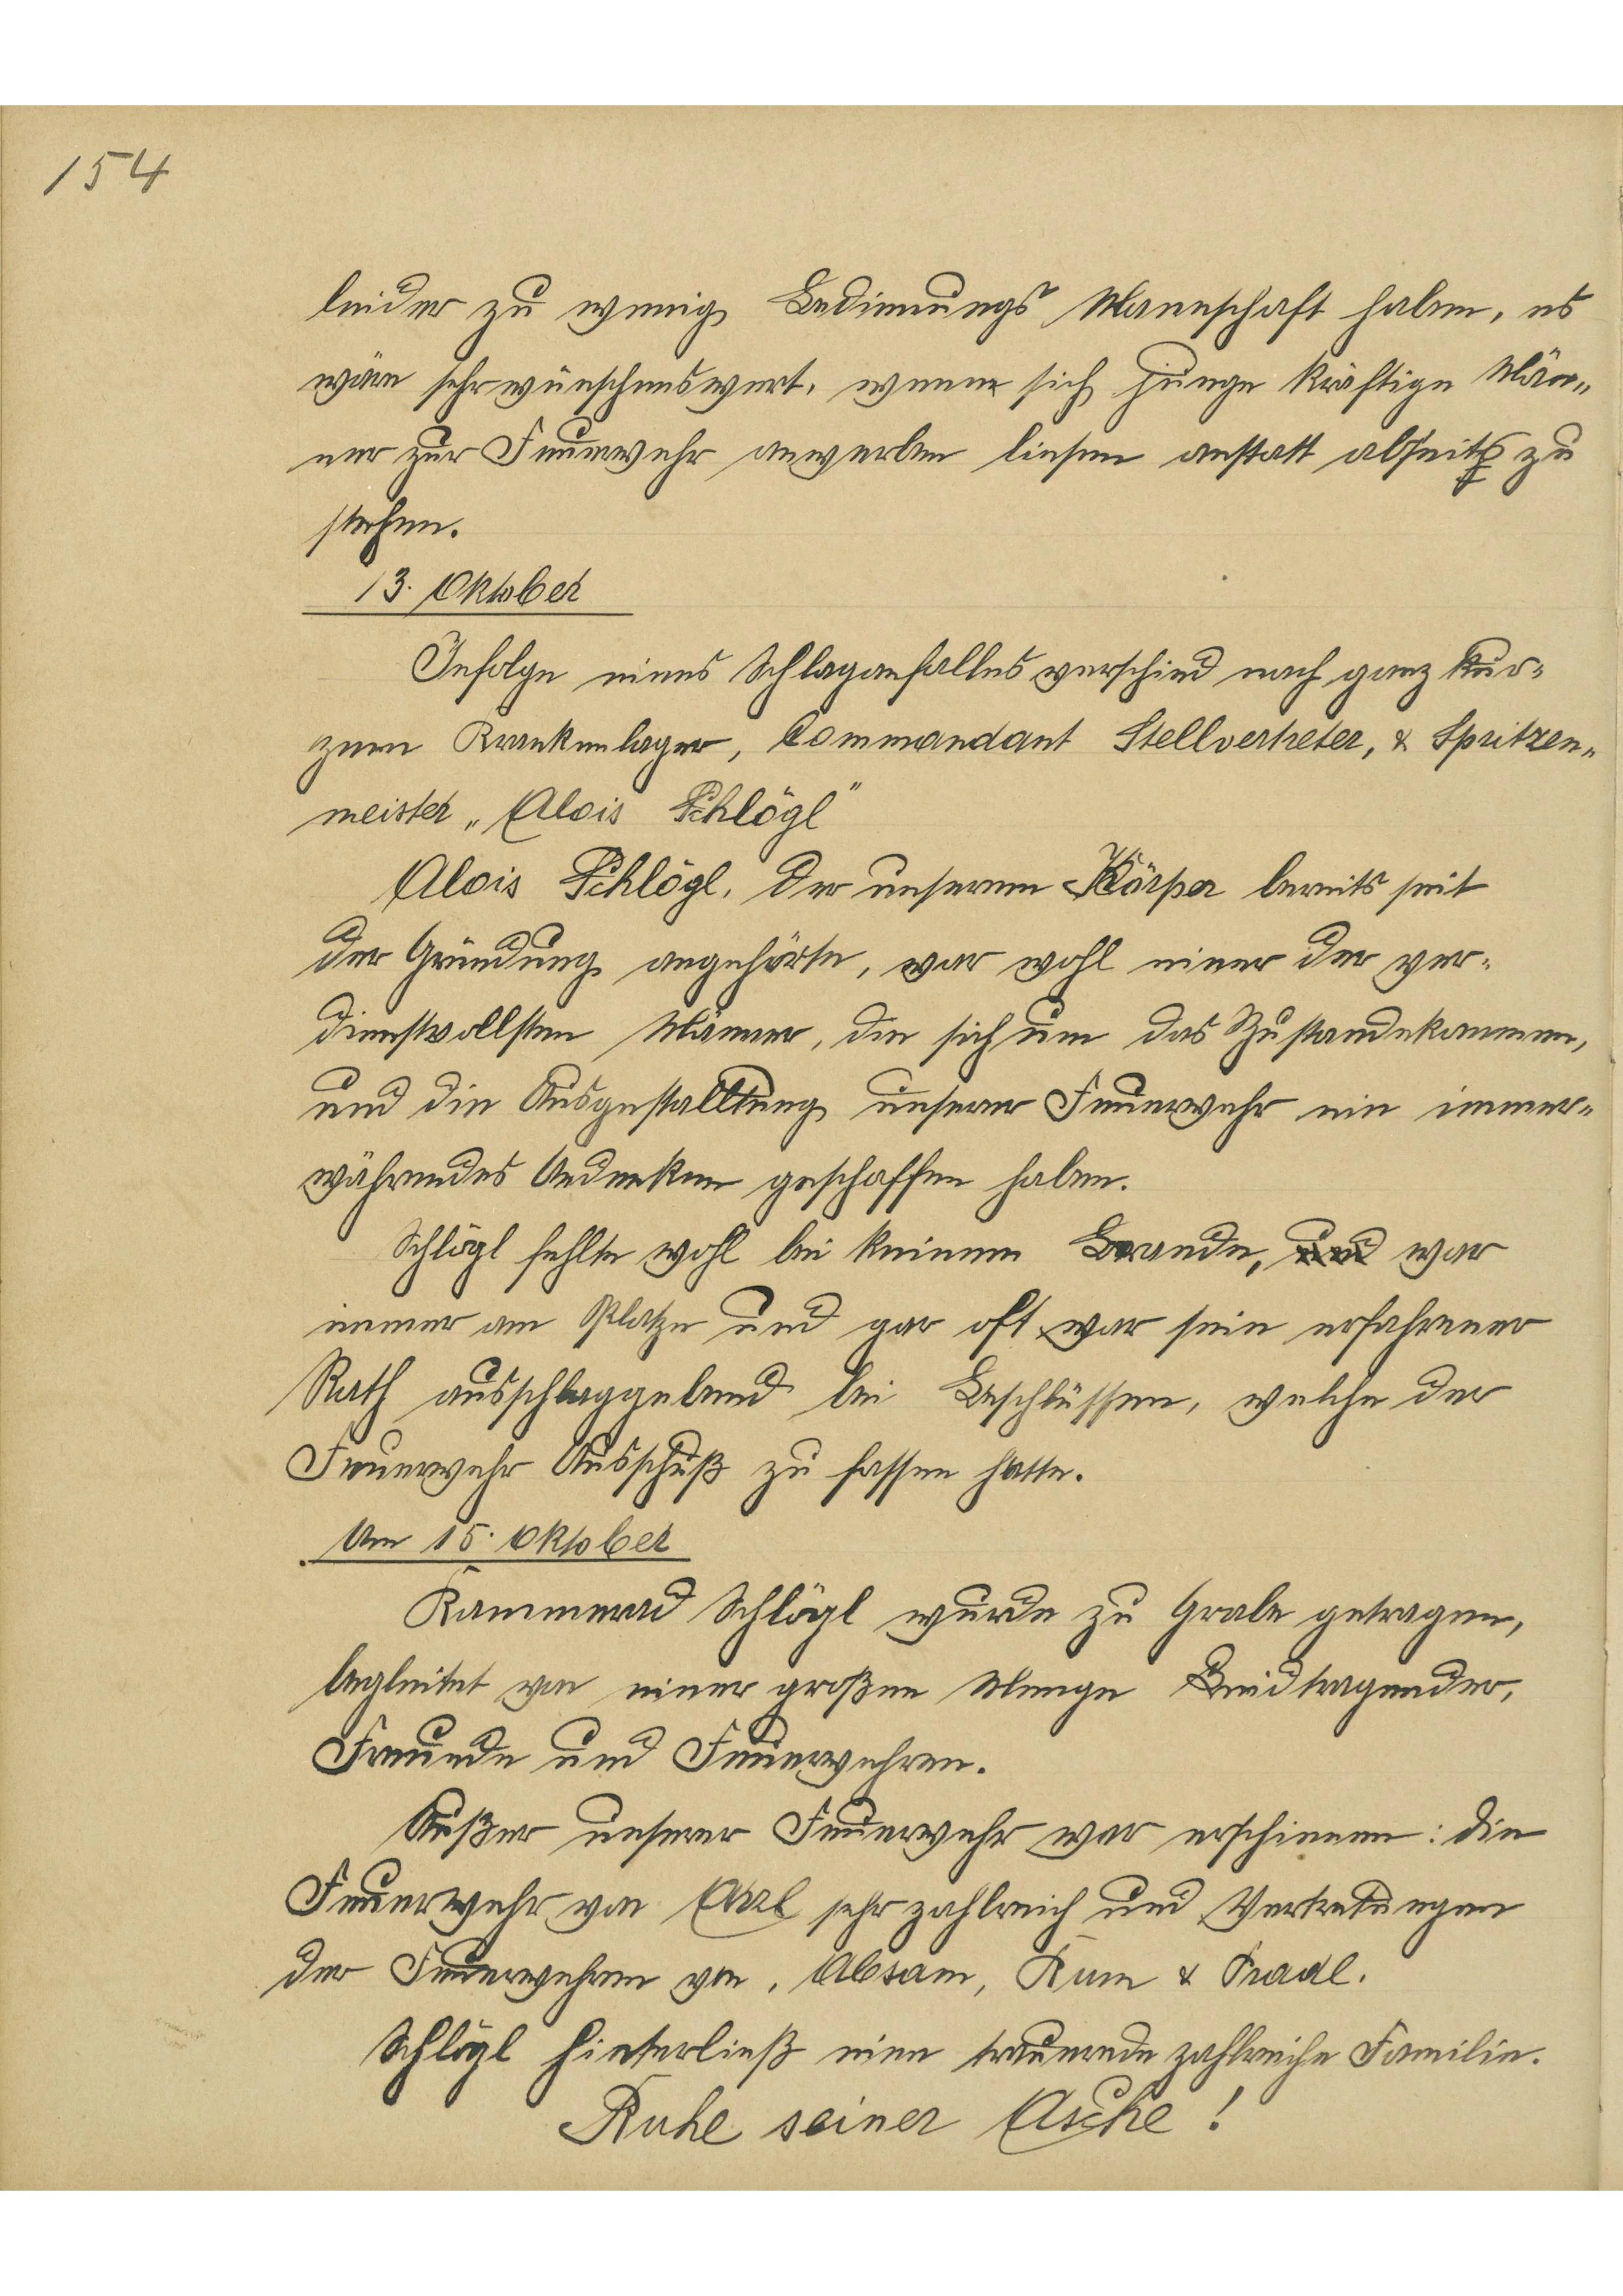 154
leider zu wenig Bedienungs Mannschaft haben, es
wäre sehr wünschenswert, wenn sich junge kräftige Män-
ner zur Feuerwehr anwerben liesen anstatt abseits zu
stehen.
13. Oktober
Infolge eines Schlaganfalles verschied nach ganz kur-
zem Krankenlager, Commandant Stellvertreter, & Spritzen-
meister „Alois Schlögl"
Alois Schlögl, der unserem Körper bereits seit
der Gründung angehörte, war wohl einer der ver-
dienstvollsten Männer, die sich um das Zustandekommen,
und die Ausgestalltung unserer Feuerwehr ein immer-
währendes Andenken geschaffen haben.
Schlögl fehlte wohl bei keinem Brande, und war
immer am Platze und gar oft war sein erfahrener
Rath ausschlaggebend bei Beschlüssen, welche der
Feuerwehr Ausschuß zu fassen hatte.
Am 15. Oktober
Kammerad Schlögl wurde zu Grabe getragen,
begleitet von einer großen Menge Leidtragender,
Freunde und Feuerwehren.
Außer unserer Feuerwehr war erschienen: die
Feuerwehr von Arzl sehr zahlreich und Vertretungen
der Feuerwehren von, Absam, Rum & Pradl.
Schlögl hinterließ eine trauernde zahlreiche Familie.
Ruhe seiner Asche!